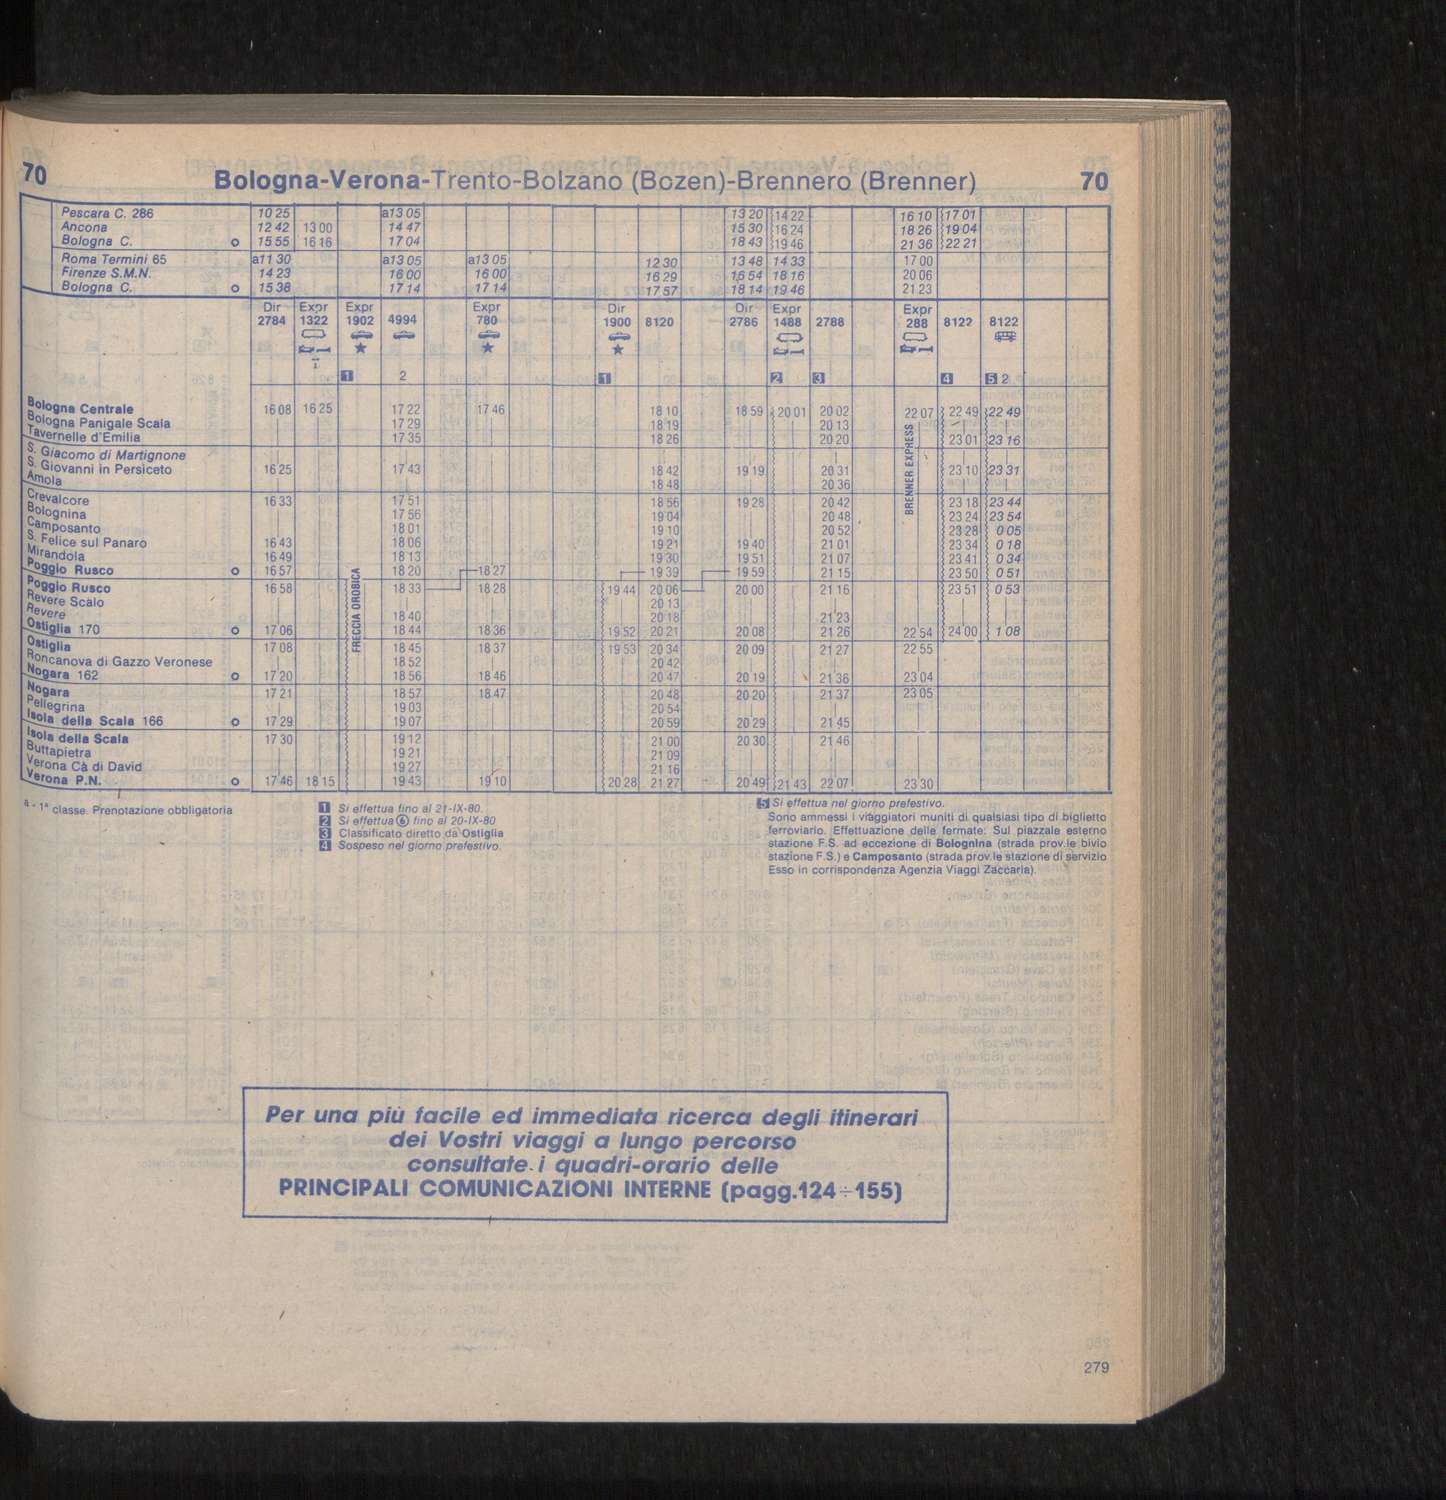 70 Bologna-Verona-Trento-Bolzano (Bozen)-Brennero (Brenner) 70
Pescara C. 286 10 25 a13 05 13 20 14 22 16 10 17 01
Ancona 12 42 13 00 14 47 15 30 16 24 18 26 19 04
Bologna C. o 15 55 16 16 17 04 18 43 19 46 21 36 22 21
Roma Termini 65 a11 30 a13 05 a13 05 12 30 13 48 14 33 17 00
Firenze S.M.N. 14 23 16 00 16 00 16 29 16 54 18 16 20 06
Bologna C. o 15 38 17 14 17 14 17 57 18 14 19 46 21 23
Dir Expr Expr Expr Dir Dir Expr Expr
2784 1322 1902 4994 780 1900 8120 2786 1488 2788 288 8122 8122
1 2 1 2 3 4 5 2
Bologna Centrale 16 08 16 25 17 22 17 46 18 10 18 59 20 01 20 02 22 07 22 49 22 49
Bologna Panigale Scala 17 29 18 19 20 13
Tavernelle d'Emilia 17 35 18 26 20 20 23 01 23 16
S. Giacomo di Martignone
S. Giovanni in Persiceto 16 25 17 43 18 42 19 19 20 31 23 10 23 31
Amola 18 48 20 36
Crevalcore 16 33 17 51 18 56 19 28 20 42 23 18 23 44
Bolognina 17 56 19 04 20 48 23 24 23 54
Camposanto 18 01 19 10 20 52 23 28 0 05
S. Felice sul Panaro 16 43 18 06 19 21 19 40 21 01 23 34 0 18
Mirandola 16 49 18 13 19 30 19 51 21 07 23 41 0 34
Poggio Rusco o 16 57 18 20 18 27 19 39 19 59 21 15 23 50 0 51
Poggio Rusco 16 58 18 33 18 28 19 44 20 06 20 00 21 16 23 51 0 53
Revere Scalo 20 13
Revere 18 40 20 18 21 23
Ostiglia 170 o 17 06 18 44 18 36 19 52 20 21 20 08 21 26 22 54 24 00 1 08
Ostiglia 17 08 18 45 18 37 19 53 20 34 20 09 21 27 22 55
Roncanova di Gazzo Veronese 18 52 20 42
Nogara 162 o 17 20 18 56 18 46 20 47 20 19 21 36 23 04
Nogara 17 21 18 57 18 47 20 48 20 20 21 37 23 05
Pellegrina 19 03 20 54
Isola della Scala 166 o 17 29 19 07 20 59 20 29 21 45
Isola della Scala 17 30 19 12 21 00 20 30 21 46
Buttapietra 19 21 21 09
Verona Cà di David 19 27 21 16
Verona P.N. o 17 46 18 15 19 43 19 10 20 28 21 27 20 49 21 43 22 07 23 30
FRECCIA OROBICA
BRENNER EXPRESS
a - 1ª classe. Prenotazione obbligatoria
1 Si effettua fino al 21-IX-80.
2 Si effettua ⑥ fino al 20-IX-80
3 Classificato diretto da Ostiglia
4 Sospeso nel giorno prefestivo.
5 Si effettua nel giorno prefestivo.
Sono ammessi i viaggiatori muniti di qualsiasi tipo di biglietto
ferroviario. Effettuazione delle fermate: Sul piazzale esterno
stazione F.S. ad eccezione di Bolognina (strada prov.le bivio
stazione F.S.) e Camposanto (strada prov.le stazione di servizio
Esso in corrispondenza Agenzia Viaggi Zaccaria).
Per una più facile ed immediata ricerca degli itinerari
dei Vostri viaggi a lungo percorso
consultate i quadri-orario delle
PRINCIPALI COMUNICAZIONI INTERNE (pagg.124÷155)
279